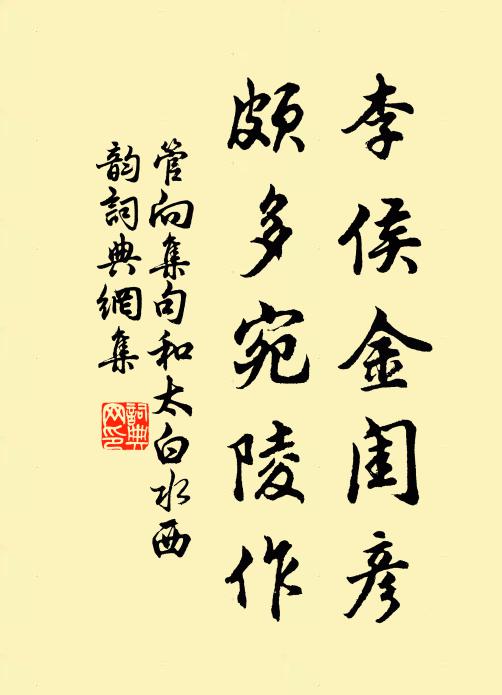 李侯金闺彦
颇多宛陵作
管向集句和太白水西
韵詞典網集
詞典
网印